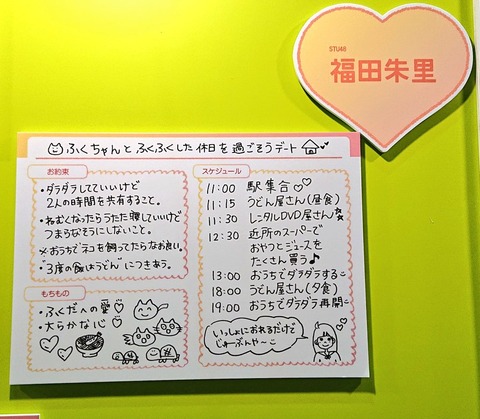 STU48
福田朱里
ふくちゃんとふくふくした休日を過ごそうデート
お約束
・ダラダラしてていいけど
2人の時間を共有すること。
・ねむくなったらうたた寝していいけど
つまらなそうにしないこと。
※おうちでネコを飼ってたらなお良い。
・"3度の飯はうどん"につきあう。
もちもの
・ふくだへの愛
・大らかな心
スケジュール
11:00 駅集合
11:15 うどん屋さん(昼食)
11:30 レンタルDVD屋さん
12:30 近所のスーパーで
おやつとジュースを
たくさん買う♪
13:00 おうちでダラダラする
18:00 うどん屋さん(夕食)
19:00 おうちでダラダラ再開
いっしょにおれるだけで
じゅーぶんや〜